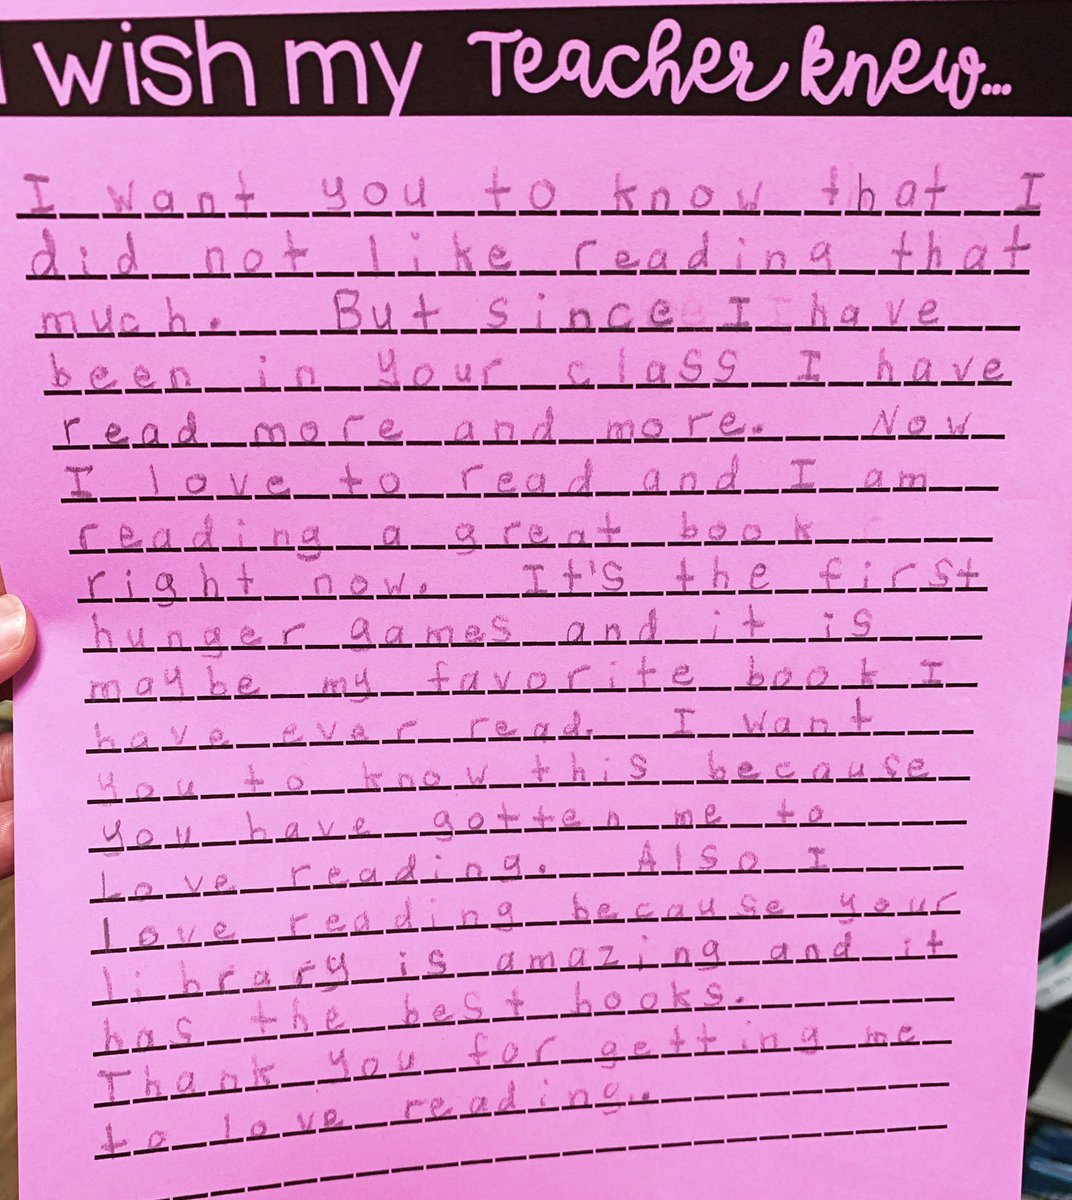 I wish my Teacher knew...
I want you to know that I
did not like reading that
much. But since I have
been in your class I have
read more and more. Now
I love to read and I am
reading a great book
right now. It's the first
hunger games and it is
maybe my favorite book I
have ever read. I want
you to know this because
you have gotten me to
Love reading. Also I
Love reading because your
library is amazing and it
has the best books.
Thank you for getting me
to love reading.